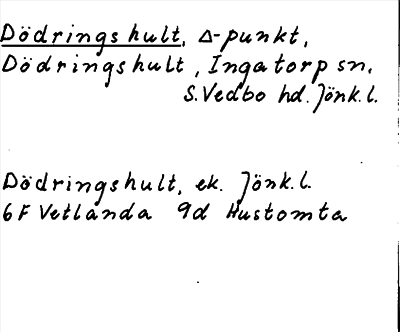 Dödringshult, Δ-punkt,
Dödringshult, Ingatorp sn.
S. Vedbo hd. Jönk. l.
Dödringshult, ek. Jönk. l.
6F Vetlanda 9d Hustomta